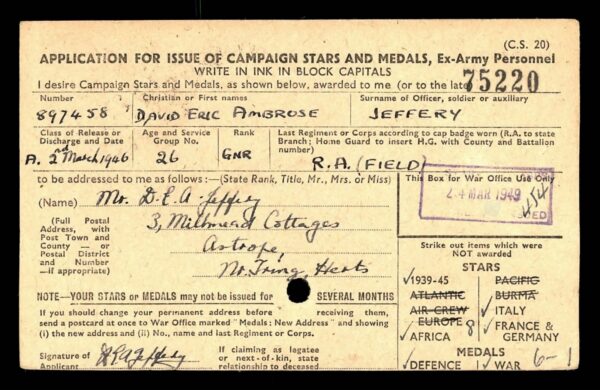 (C.S. 20)
APPLICATION FOR ISSUE OF CAMPAIGN STARS AND MEDALS, Ex-Army Personnel
WRITE IN INK IN BLOCK CAPITALS
I desire Campaign Stars and Medals, as shown below, awarded to me (or to the late
75220
Number
Christian or First names
Surname of Officer, soldier or auxiliary
897458
DAVID ERIC AMBROSE
JEFFERY
Class of Release or Discharge and Date
Age and Service Group No.
Rank
Last Regiment or Corps according to cap badge worn (R.A. to state Branch; Home Guard to insert H.G. with County and Battalion number)
A. 2nd March 1946
26
GNR
R.A. (FIELD)
to be addressed to me as follows :—(State Rank, Title, Mr., Mrs. or Miss)
This Box for War Office Use Only
(Name) Mr. D.E.A. Jeffery
24 MAR 1949
(Full Postal Address, with Post Town and County — or Postal District and Number —if appropriate)
3, Millmead Cottages
Astrope,
Nr. Tring, Herts
Strike out items which were NOT awarded
STARS
1939-45
PACIFIC
ATLANTIC
BURMA
AIR CREW EUROPE
ITALY
AFRICA 8
FRANCE & GERMANY
MEDALS
DEFENCE
WAR
6- 1
NOTE—YOUR STARS or MEDALS may not be issued for SEVERAL MONTHS
If you should change your permanent address before receiving them,
send a postcard at once to War Office marked "Medals : New Address" and showing
(i) the new address and (ii) No., name and last Regiment or Corps.
Signature of Applicant
D E A Jeffery
If claiming as legatee or next-of-kin, state relationship to deceased